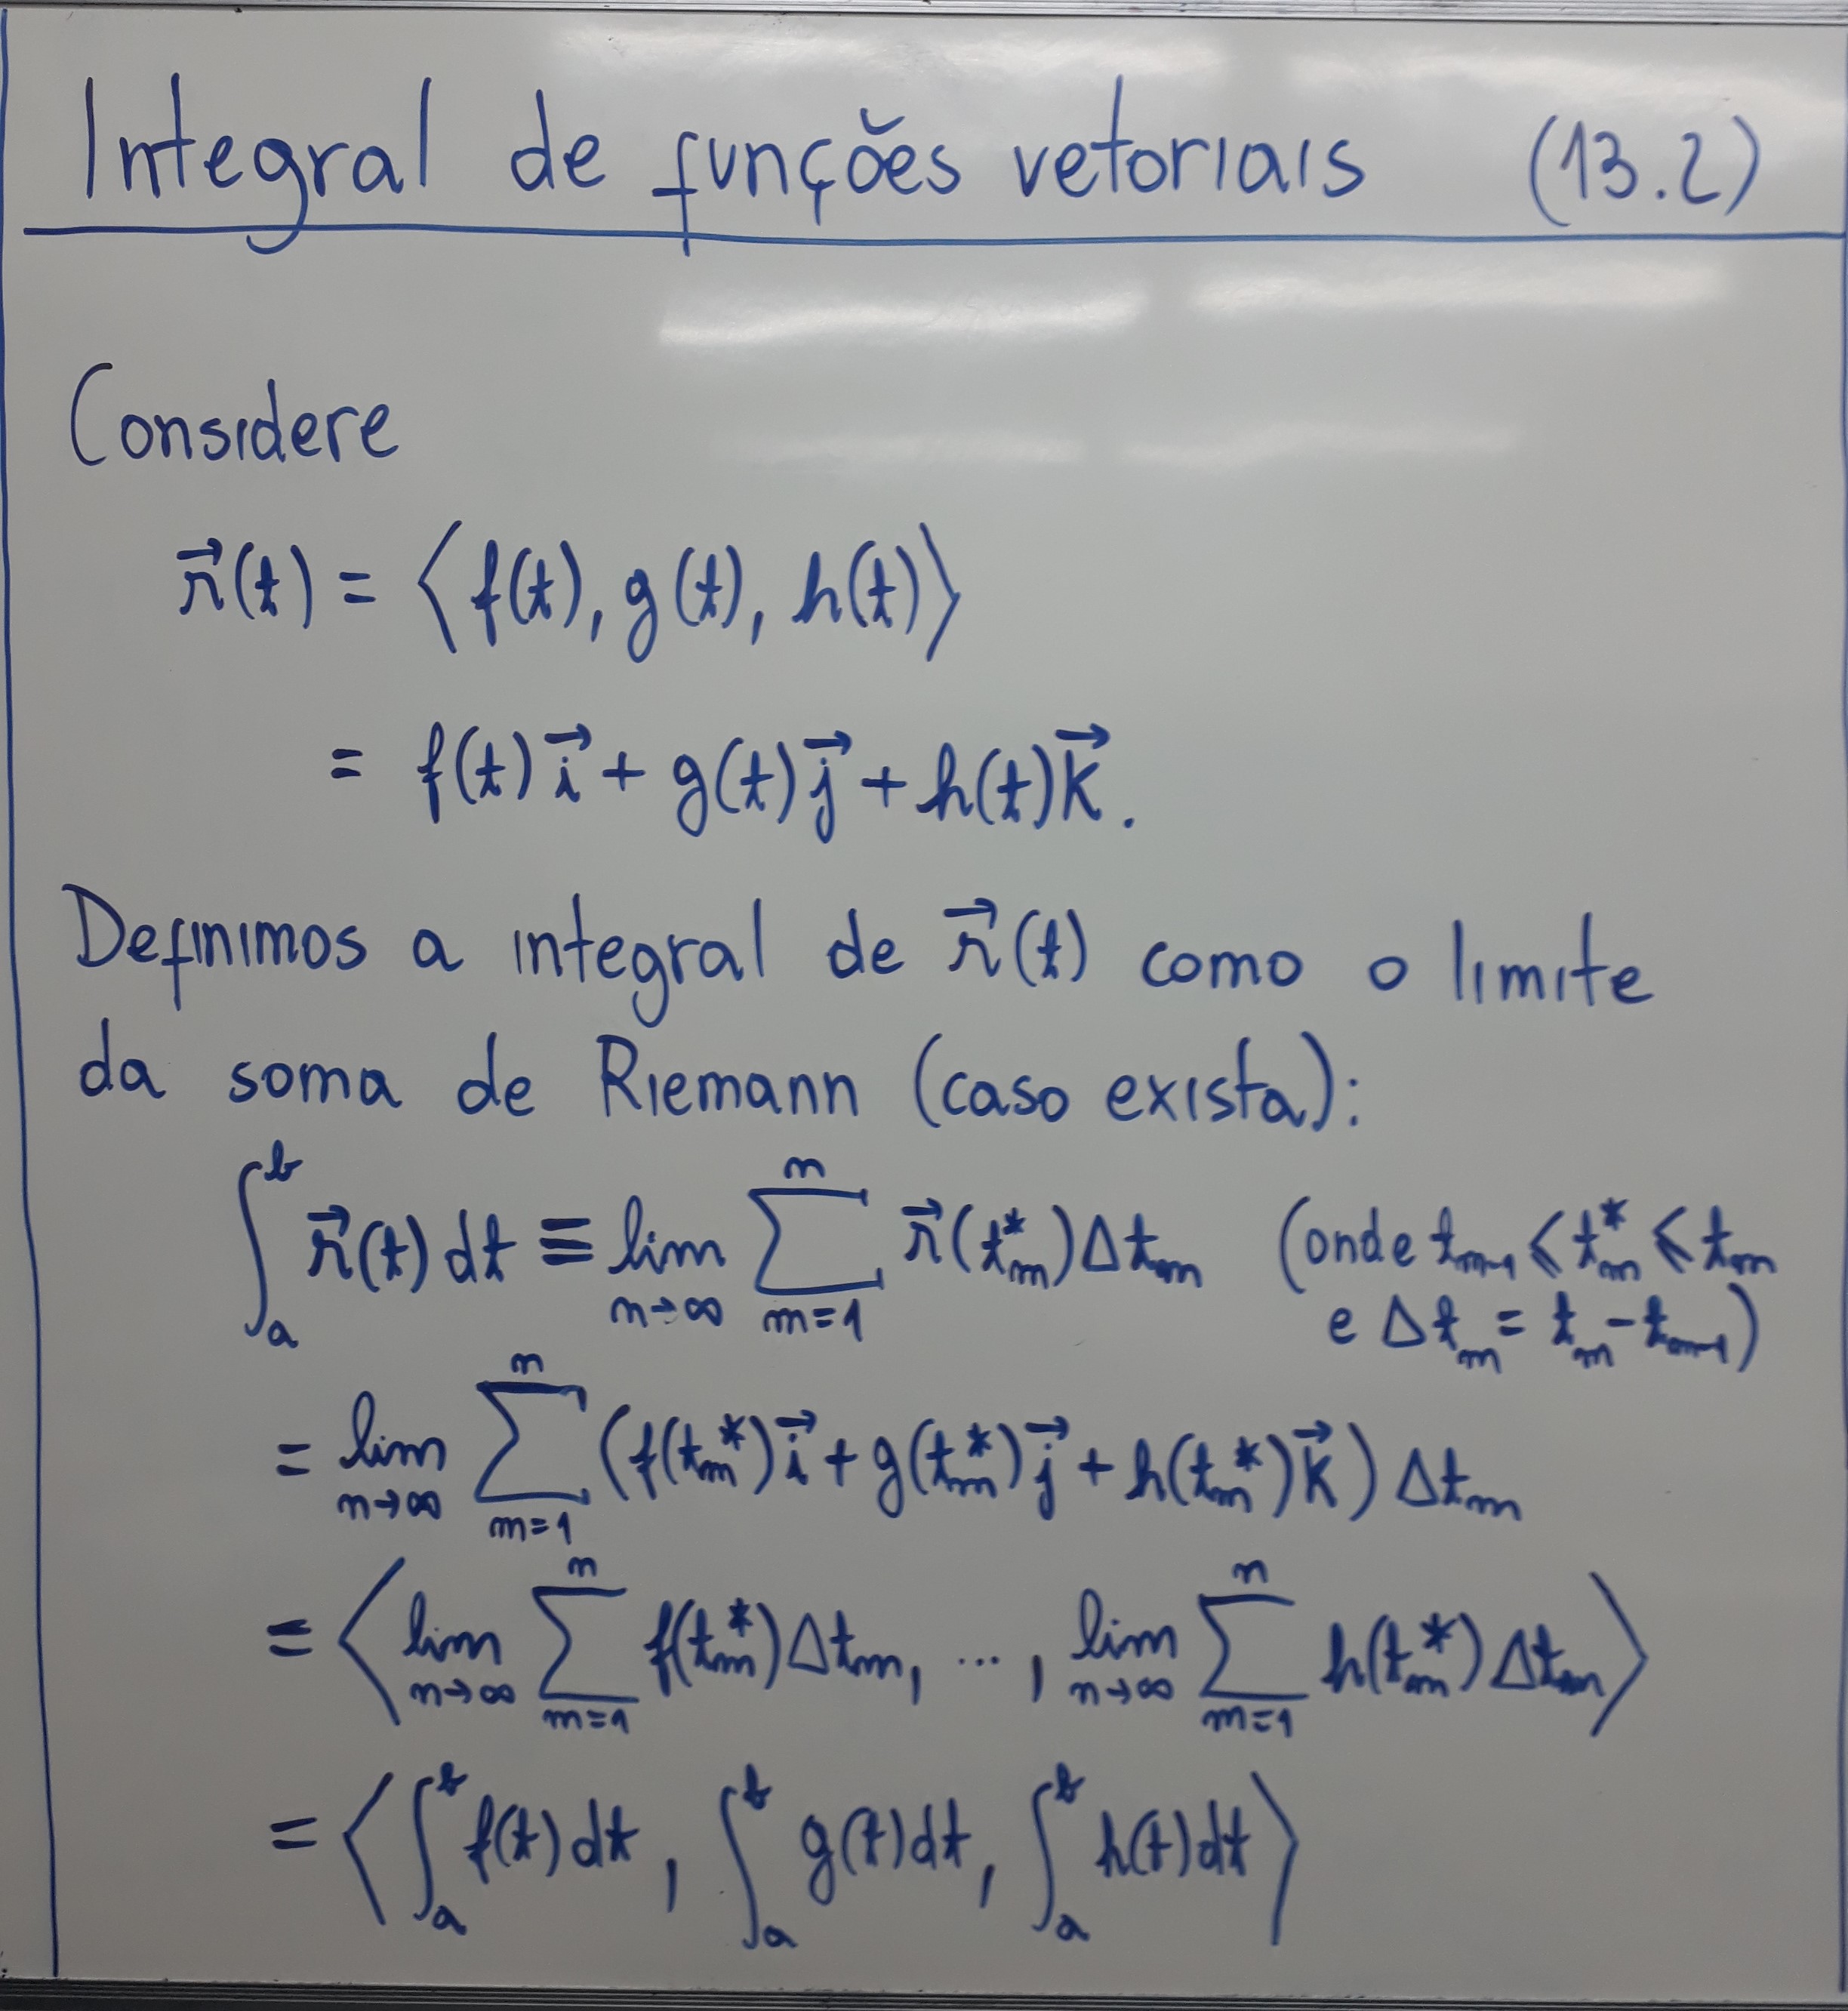 Integral de funções vetoriais (13.2)
Considere
r⃗(t) = ⟨f(t), g(t), h(t)⟩
= f(t)i⃗ + g(t)j⃗ + h(t)k⃗.
Definimos a integral de r⃗(t) como o limite
da soma de Riemann (caso exista):
∫_a^b r⃗(t) dt ≡ lim_{n→∞} ∑_{m=1}^{n} r⃗(t_m^*)Δt_m (onde t_{m-1} ⩽ t_m^* ⩽ t_m
e Δt_m = t_m - t_{m-1})
= lim_{n→∞} ∑_{m=1}^{n} (f(t_m^*)i⃗ + g(t_m^*)j⃗ + h(t_m^*)k⃗) Δt_m
= ⟨lim_{n→∞} ∑_{m=1}^{n} f(t_m^*)Δt_m, ..., lim_{n→∞} ∑_{m=1}^{n} h(t_m^*)Δt_m⟩
= ⟨∫_a^b f(t)dt, ∫_a^b g(t)dt, ∫_a^b h(t)dt⟩